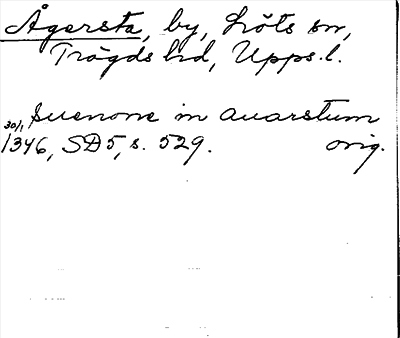 Ågersta, by, Löts sn,
Trögds hd, Upps. l.
Suenone in auarstum
30/1 1346, SD 5, s. 529. orig.